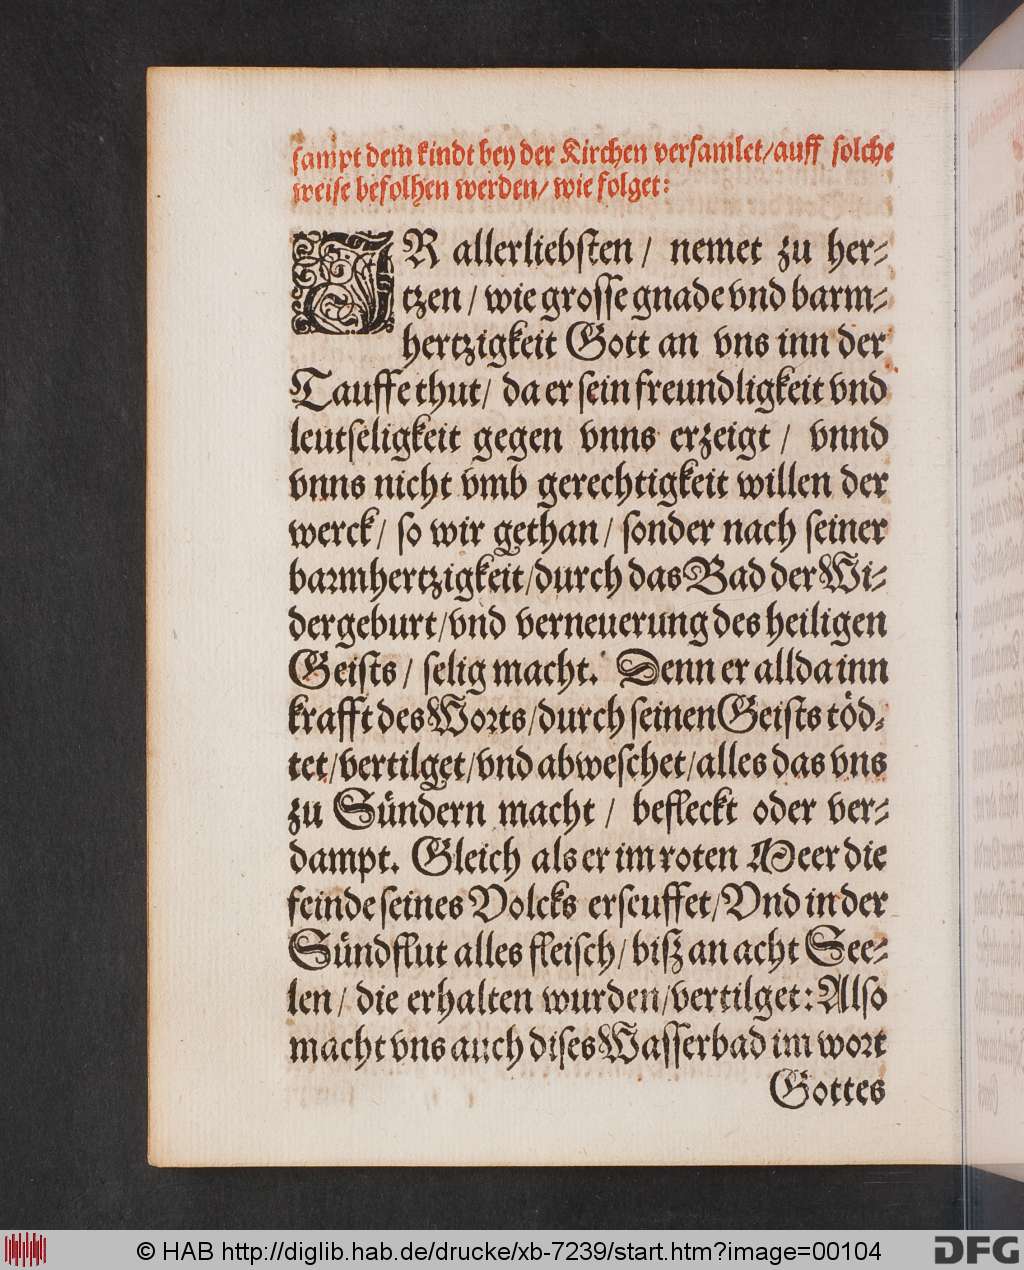 sampt dem kindt bey der Kirchen versamlet/auff solche
weise befolhen werden/ wie folget:
IR allerliebsten / nemet zu her-
tzen / wie grosse gnade vnd barm-
hertzigkeit Gott an vns inn der
Tauffe thut/ da er sein freundligkeit vnd
leutseligkeit gegen vnns erzeigt / vnnd
vnns nicht vmb gerechtigkeit willen der
werck/ so wir gethan / sonder nach seiner
barmhertzigkeit/durch das Bad der Wi-
dergeburt/vnd verneuerung des heiligen
Geists / selig macht. Denn er allda inn
krafft des Worts/durch seinen Geists töd-
tet/vertilget/vnd abweschet/alles das vns
zu Sündern macht / befleckt oder ver-
dampt. Gleich als er im roten Meer die
feinde seines Volcks erseuffet/Vnd in der
Sündflut alles fleisch/ biß an acht See-
len / die erhalten wurden/vertilget: Also
macht vns auch dises Wasserbad im wort
Gottes
© HAB http://diglib.hab.de/drucke/xb-7239/start.htm?image=00104
DFG